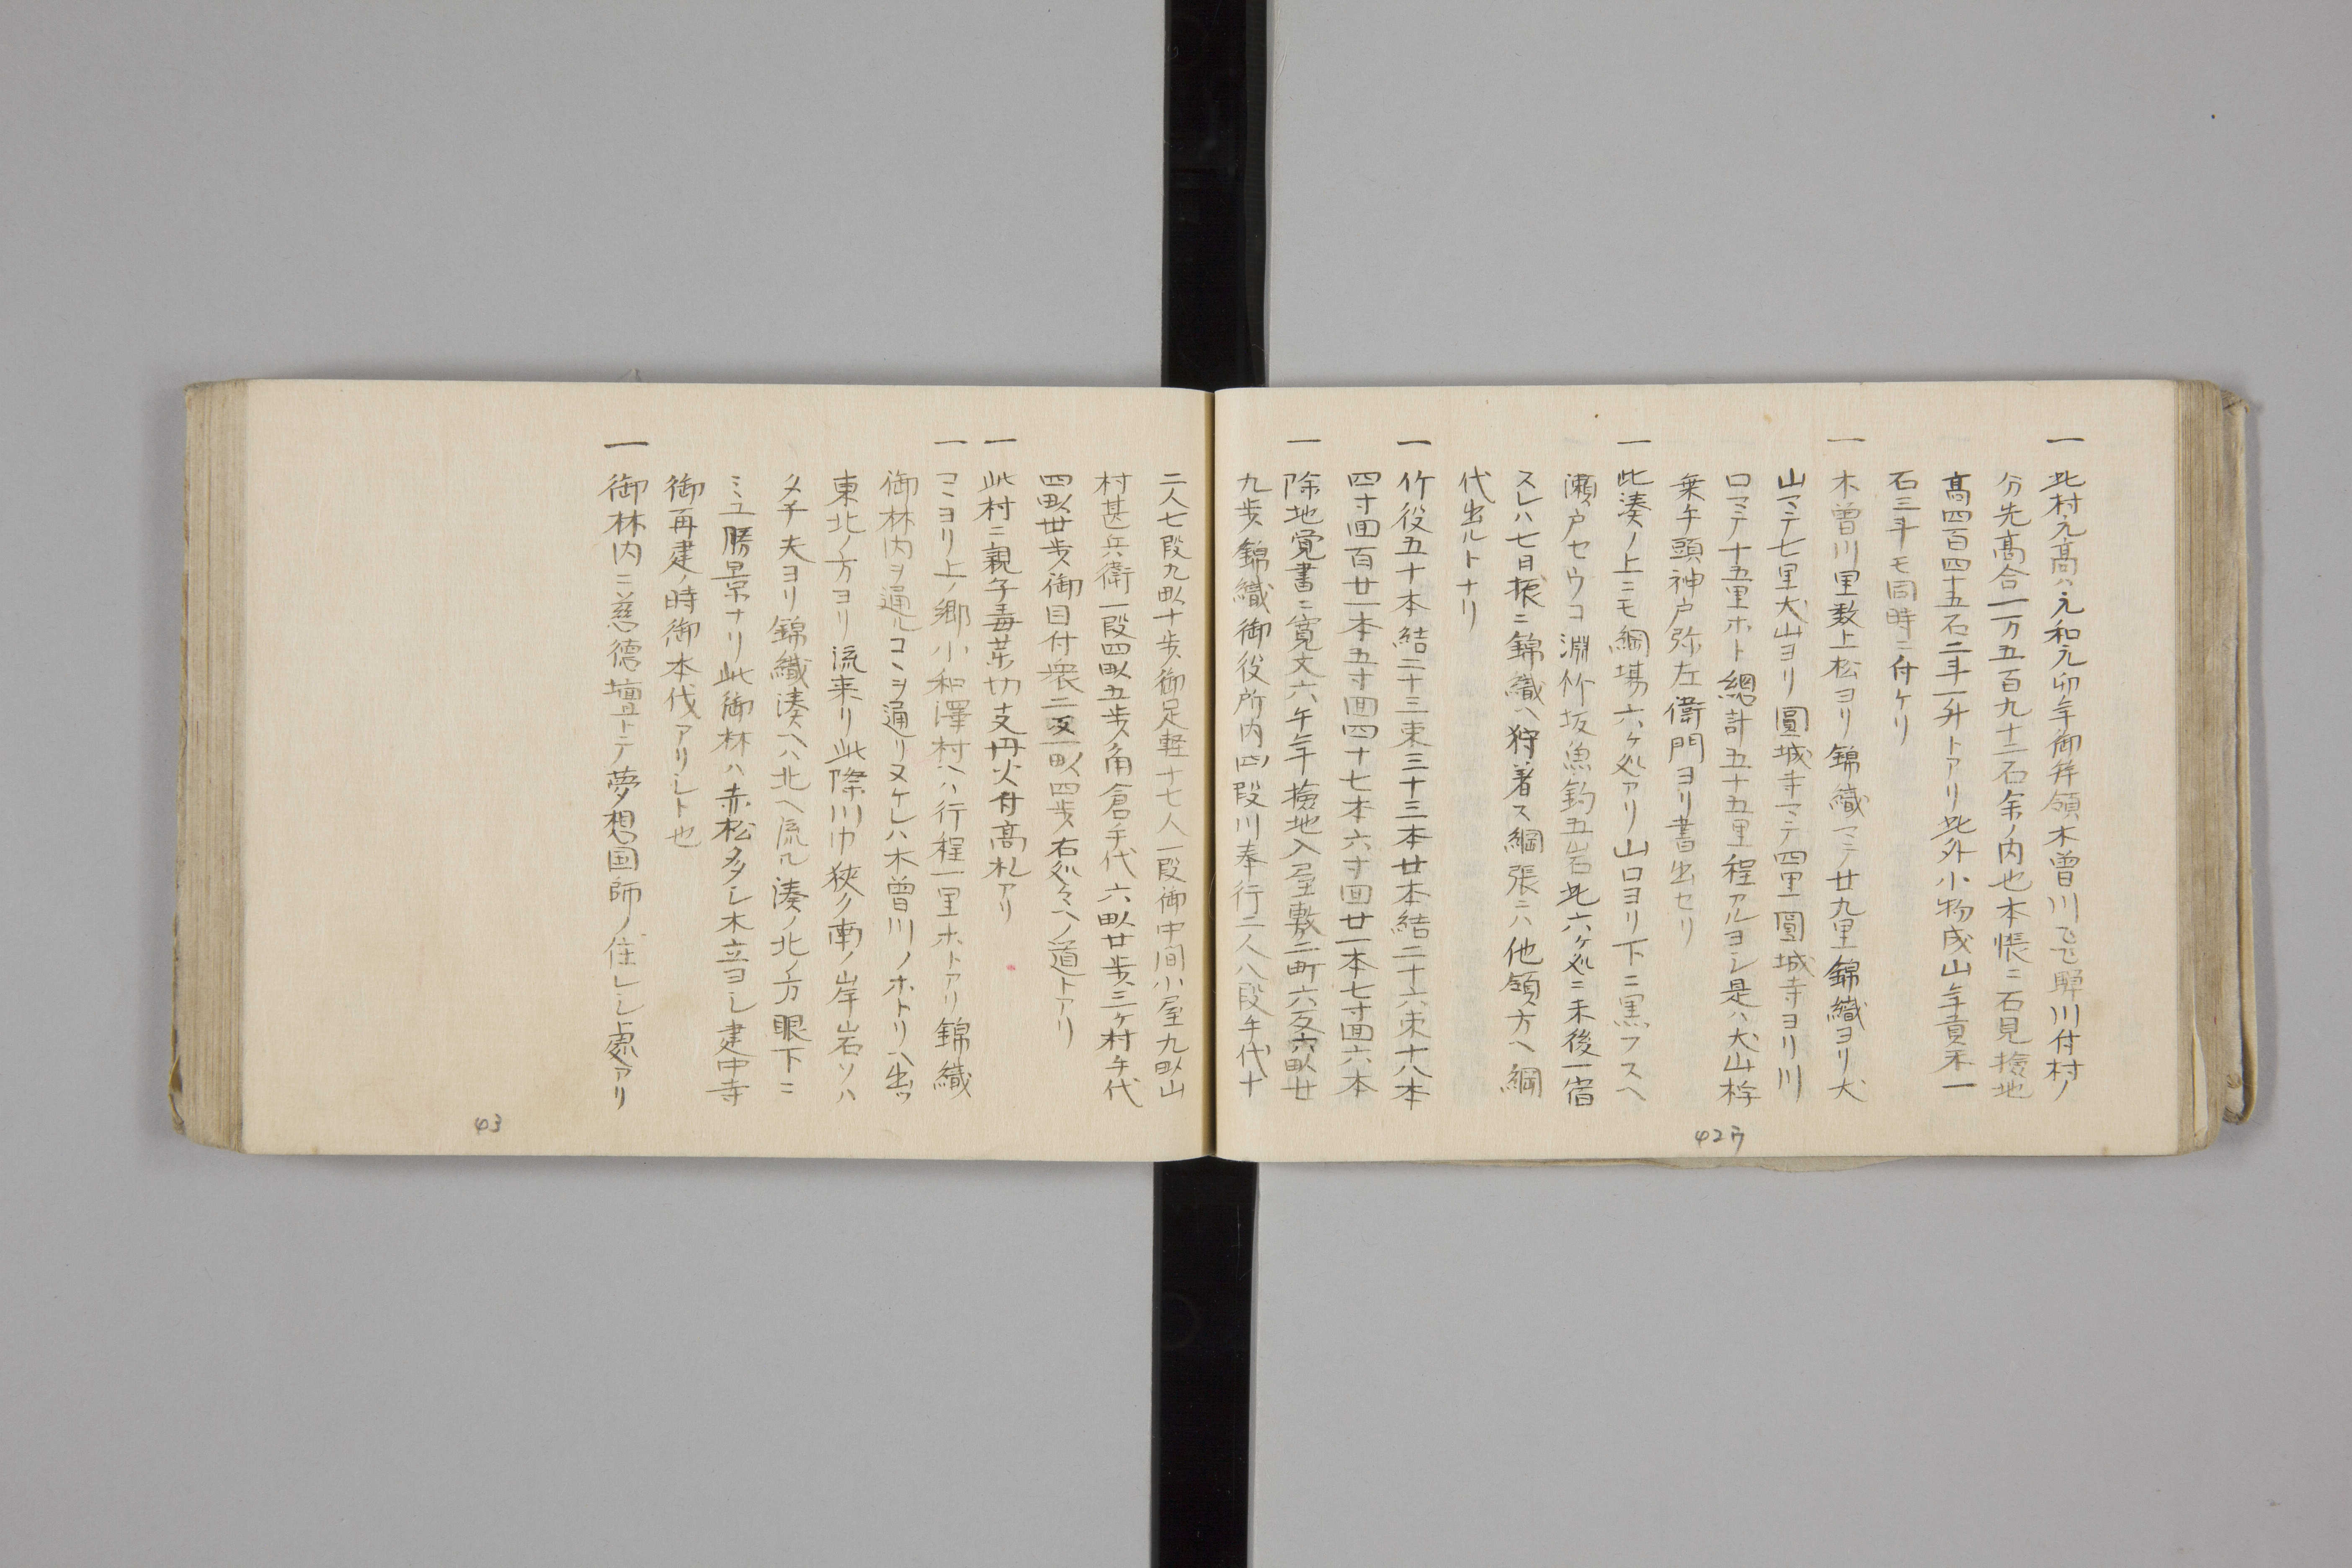 一 此村元高ハ元和元卯年御拝領木曽川飛騨川付村ノ
分先高合一万五百九十二石余ノ内也本帳ニ石見検地
高四百四十五石二斗一升トアリ此外小物成山年貢米一
石三斗モ同時ニ付ケリ
一 木曽川里数上松ヨリ錦織マテ廿九里錦織ヨリ犬
山マテ七里犬山ヨリ圓城寺マテ四里圓城寺ヨリ川
口マテ十五里ホト総計五十五里程アルヨシ是ハ犬山桴
乗手頭神戸弥左衛門ヨリ書出セリ
一 此湊ノ上ニモ綱場六ヶ処アリ山口ヨリ下ニ黒フスヘ
瀬戸セウコ淵竹坂魚釣五岩此六ヶ処ニ未後一宿
スレハ七日振ニ錦織ヘ狩着ス綱張ニハ他領方ヘ綱
代出ルトナリ
一 竹役五十本結二十三束三十三本廿本結二十六束十八本
四寸回百廿一本五寸回四十七本六寸回廿一本七寸回六本
一 除地覚書ニ寛文六午年検地入屋敷二町六反六畝廿
九歩錦織御役所内四段川奉行二人八段手代十
二人七段九畝十歩御足軽十七人一段御中間小屋九畝山
村甚兵衛一段四畝五歩角倉手代六畝廿歩三ヶ村手代
四畝廿歩御目付衆二反一畝四歩右処々ヘノ道トアリ
一 此村ニ親子毒薬切支丹火付高札アリ
一 コヽヨリ上ノ郷小和澤村ヘハ行程一里ホトアリ錦織
御林内ヲ通ルコヽヲ通リヌケレハ木曽川ノホトリヘ出ツ
東北ノ方ヨリ流来リ此際川巾狭ク南ノ岸岩ソハ
タチ夫ヨリ錦織湊ヘハ北ヘ流ル湊ノ北ノ方眼下ニ
ミユ勝景ナリ此御林ハ赤松多シ木立ヨシ建中寺
御再建ノ時御本伐アリシト也
一 御林内ニ慈徳壇トテ夢想国師ノ住レシ處アリ
42ウ
43